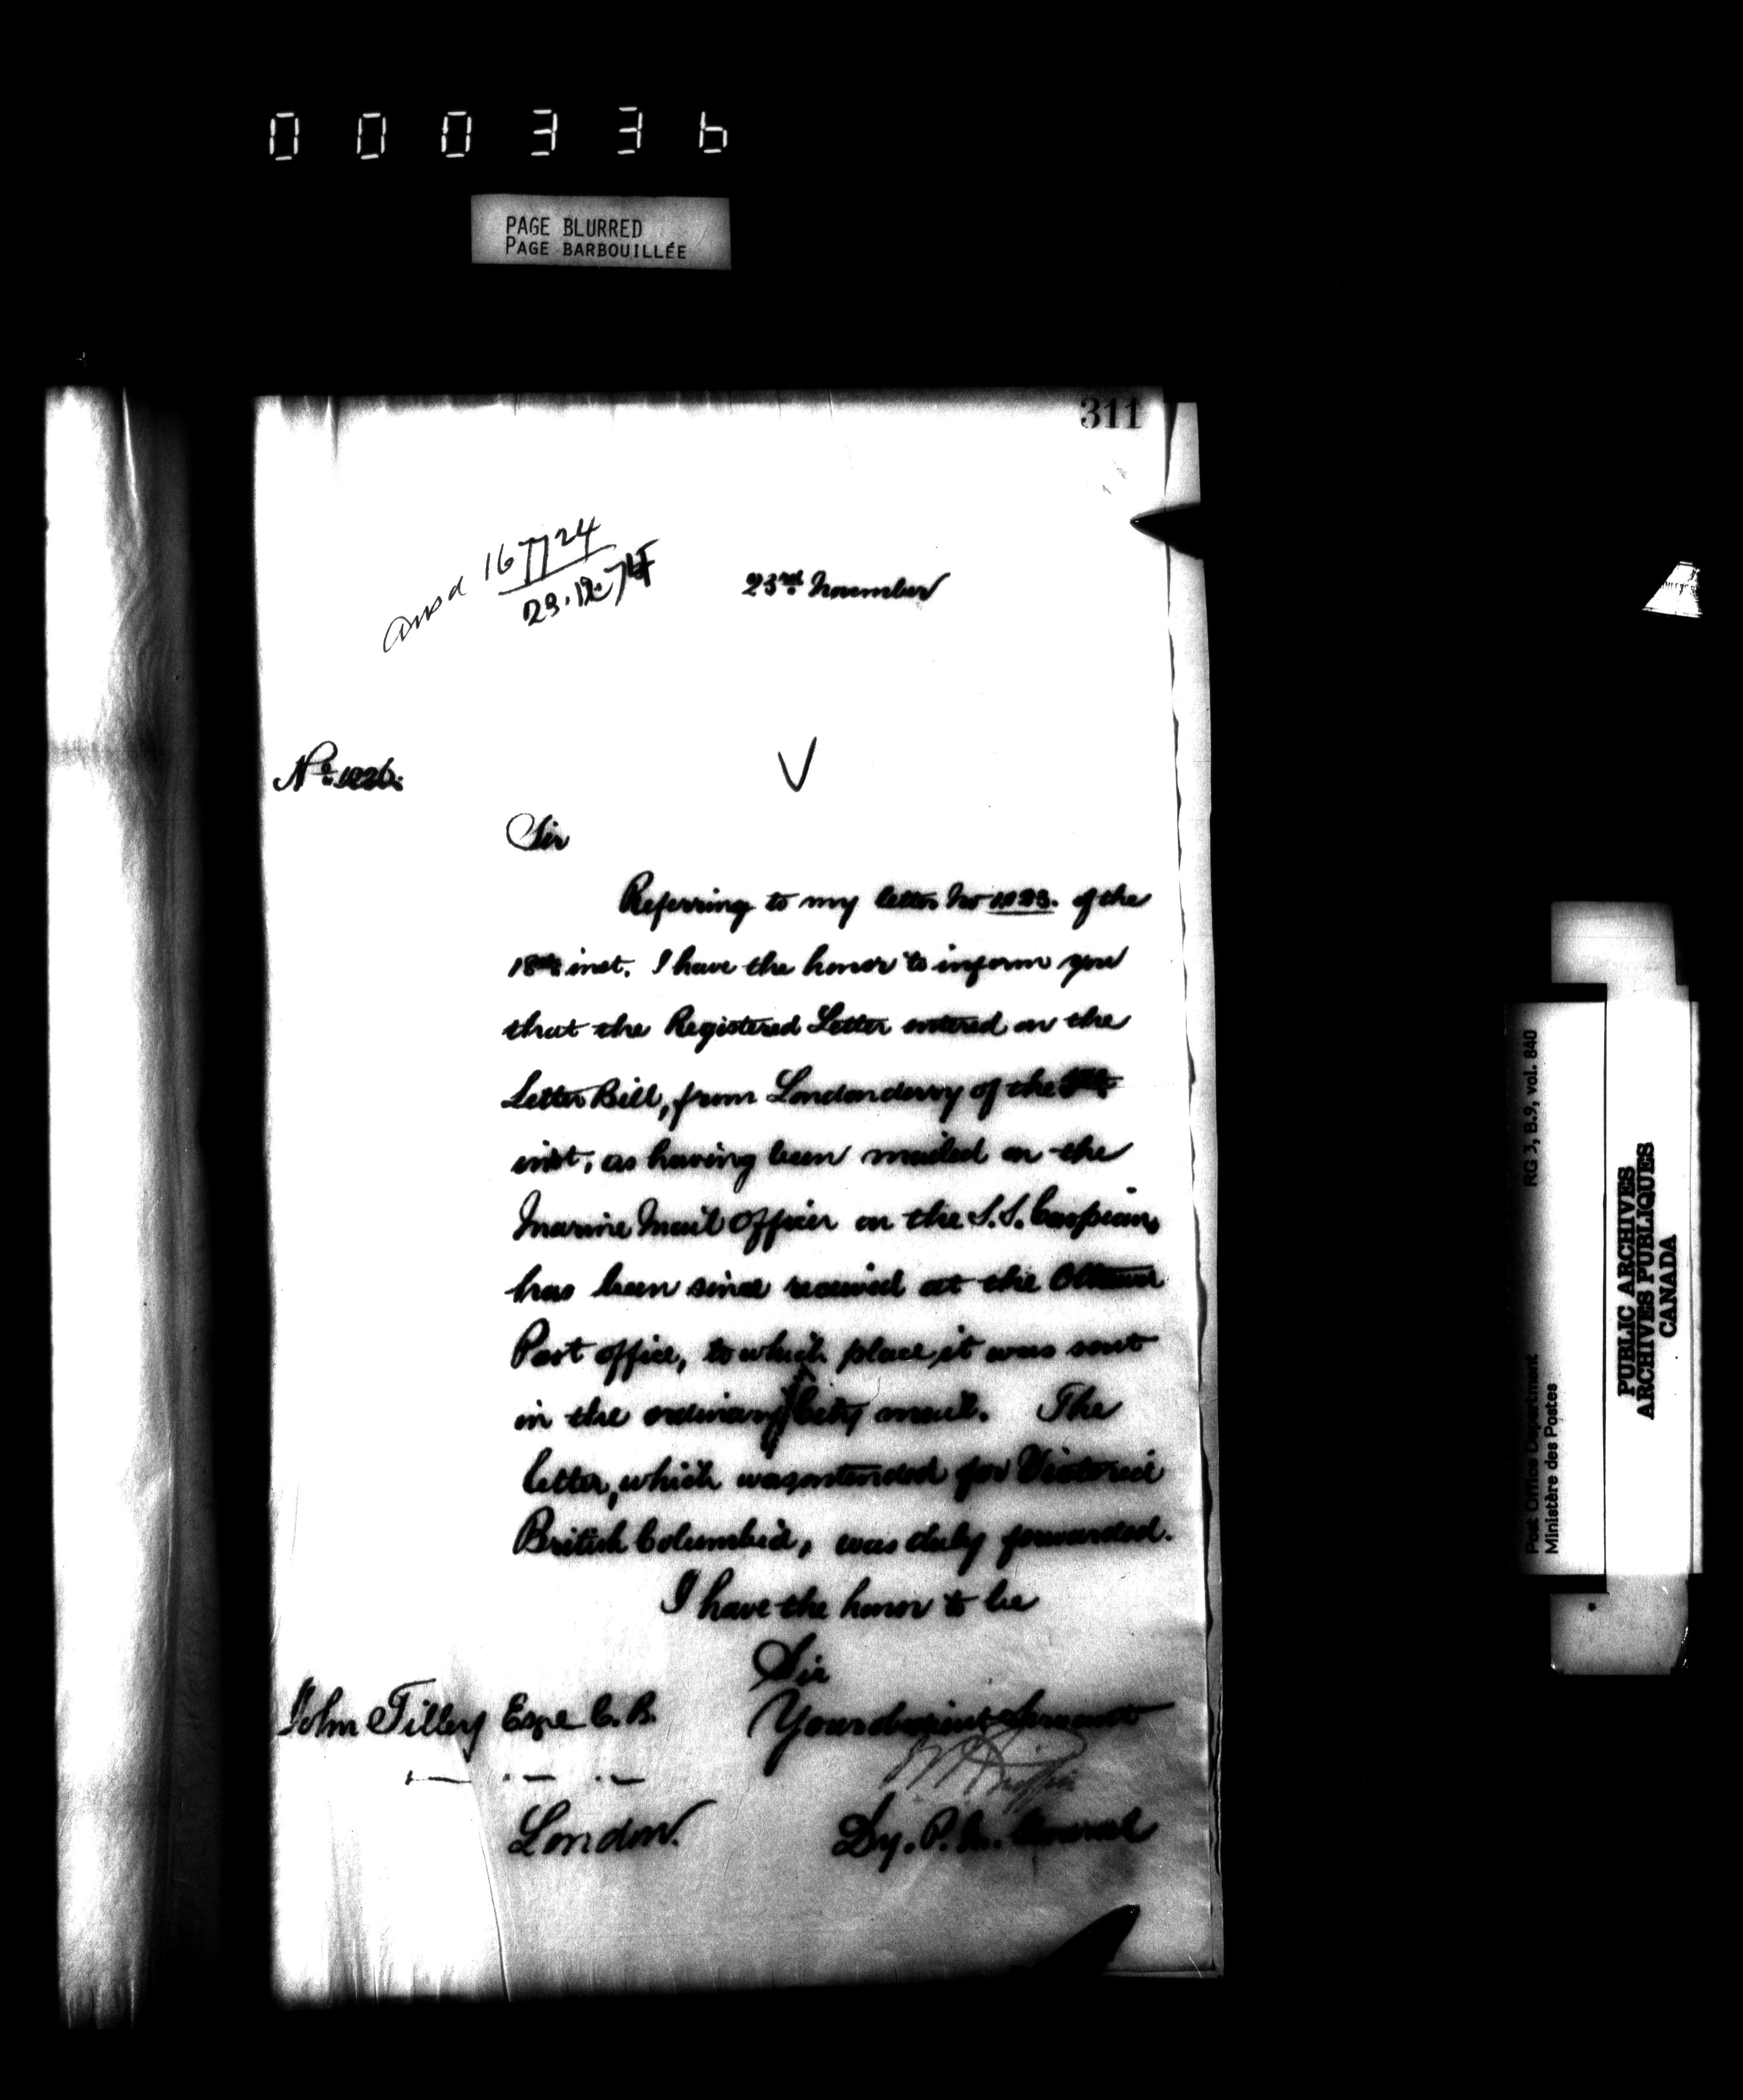 000336
PAGE BLURRED
PAGE BARBOUILLÉE
311
ansd 167724
23.12.74
23rd November
No 1226.
Sir
Referring to my letter No of the
18th inst. I have the honor to inform you
that the Registered Letter entered on the
Letter Bill, from Londonderry of the
inst, as having been mailed on the
Marine Mail Officer on the S.S. Caspian,
has been since received at the Ottawa
Post office, to which place it was sent
in the ordinary City mail. The
letter, which was intended for Victoria
British Columbia, was duly forwarded.
I have the honor to be
Sir
Your obedient Servant
John Tilley Esqe C.B.
London.
Dy. P. M. General
RG 3, B.9, vol. 840
Post Office Department
Ministère des Postes
PUBLIC ARCHIVES
ARCHIVES PUBLIQUES
CANADA